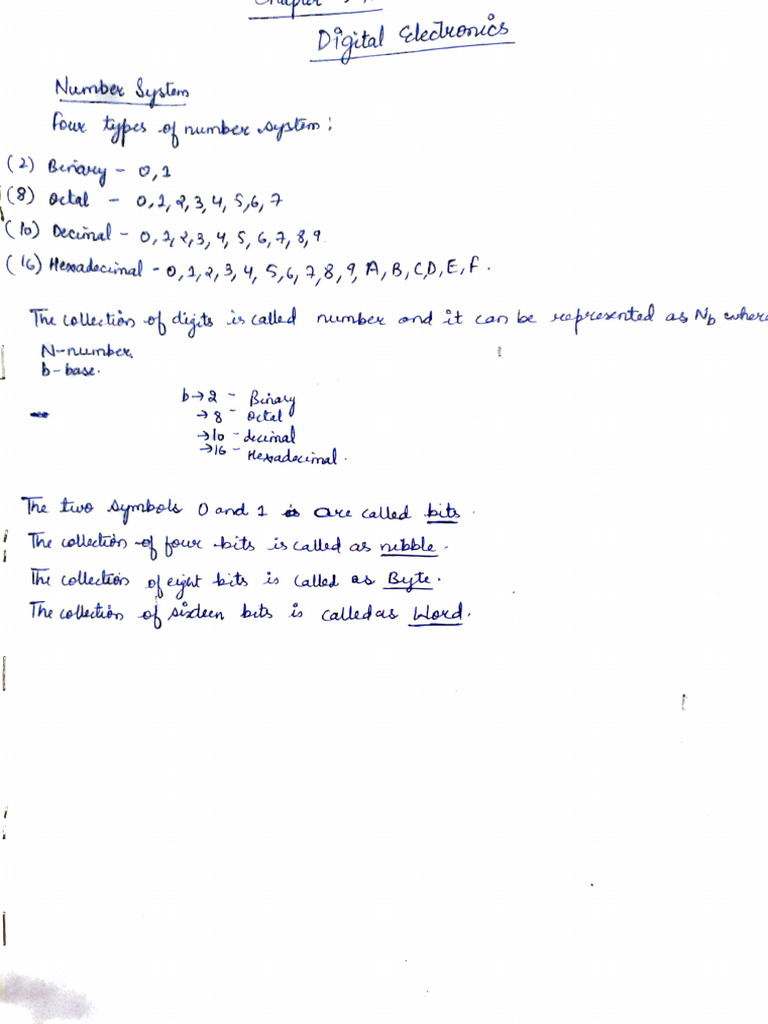 Chapter
Digital Electronics
Number System
Four types of number system:
(2) Binary - 0,1
(8) Octal - 0,1,2,3,4,5,6,7
(10) Decimal - 0,1,2,3,4,5,6,7,8,9
(16) Hexadecimal - 0,1,2,3,4,5,6,7,8,9,A,B,C,D,E,F.
The collection of digits is called number and it can be represented as Nb where
N-number.
b-base.
b→2 - Binary
→8 - Octal
→10 - decimal
→16 - Hexadecimal.
The two symbols 0 and 1 are called bits.
The collection of four bits is called as nibble.
The collection of eight bits is called as Byte.
The collection of sixteen bits is called as Word.